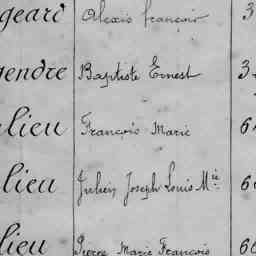 geard Alexis françois 3
gendre Baptiste Ernest 3
lieu François Marie 6
lieu Julien Joseph Louis Mie 6
lieu Pierre Marie François 66